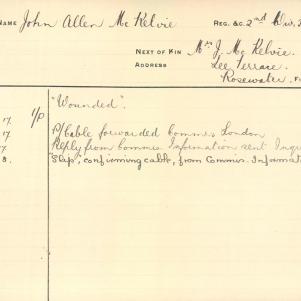 NAME John Allen McKelvie REG. &C. 2nd Div.
NEXT OF KIN Mrs J. McKelvie.
ADDRESS Lee Terrace.
Rosewater.
"Wounded".
17. I/P
17 R/Cable forwarded Commis. London
17. Reply from Commis. Information sent
8. Slip", confirming cable, from Commis.